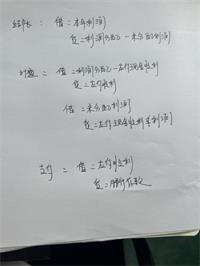 结转： 借：本年利润
贷：利润分配 - 未分配利润
借：利润分配 - 应付现金股利
贷：应付股利
借：未分配利润
贷：应付现金股利或利润
支付： 借：应付股利
贷：银行存款